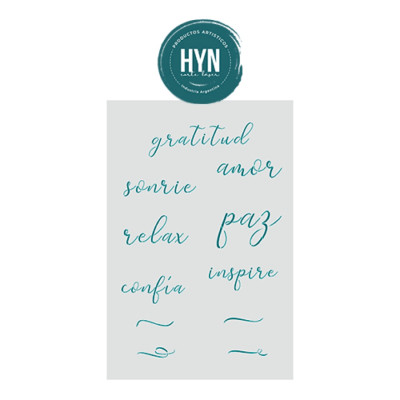 PRODUCTOS ARTISTICOS
HYN
corte láser
Industria Argentina
gratitud
amor
sonrie
paz
relax
inspire
confía